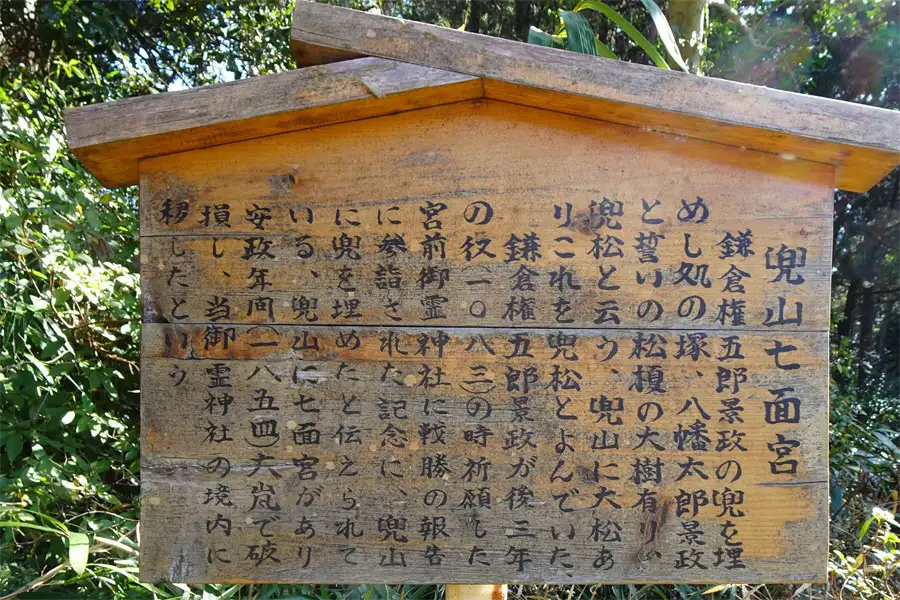 兜山七面宮
鎌倉権五郎景政の兜を埋
めし処の塚、八幡太郎景政
と誓いの松榎の大樹有り、
兜松と云う、兜山に大松あ
りこれを兜松とよんでいた、
鎌倉権五郎景政が後三年
の役(一〇八三)の時祈願した
宮前御霊神社に戦勝の報告
に参詣された記念に、兜山
に兜を埋めたと伝えられて
いる、兜山に七面宮があり
安政年间(一八五四)大嵐で破
損し、当御霊神社の境内に
移したという